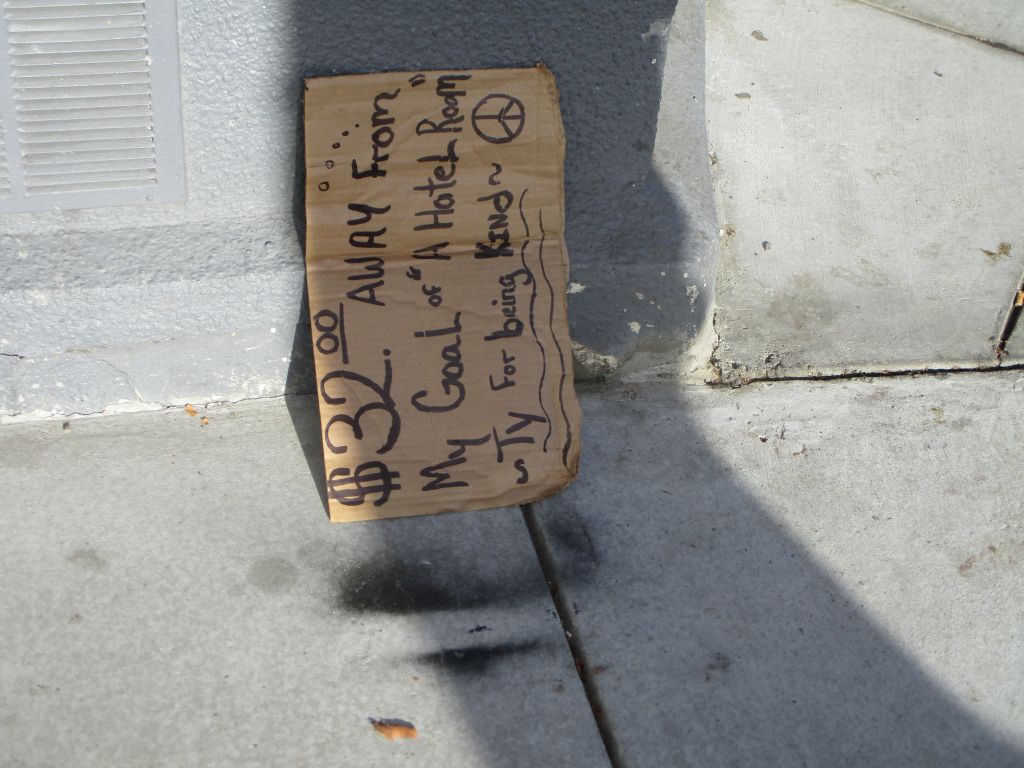 $32.00 AWAY From....
My Goal of "A Hotel Room"
~Ty For being KIND~